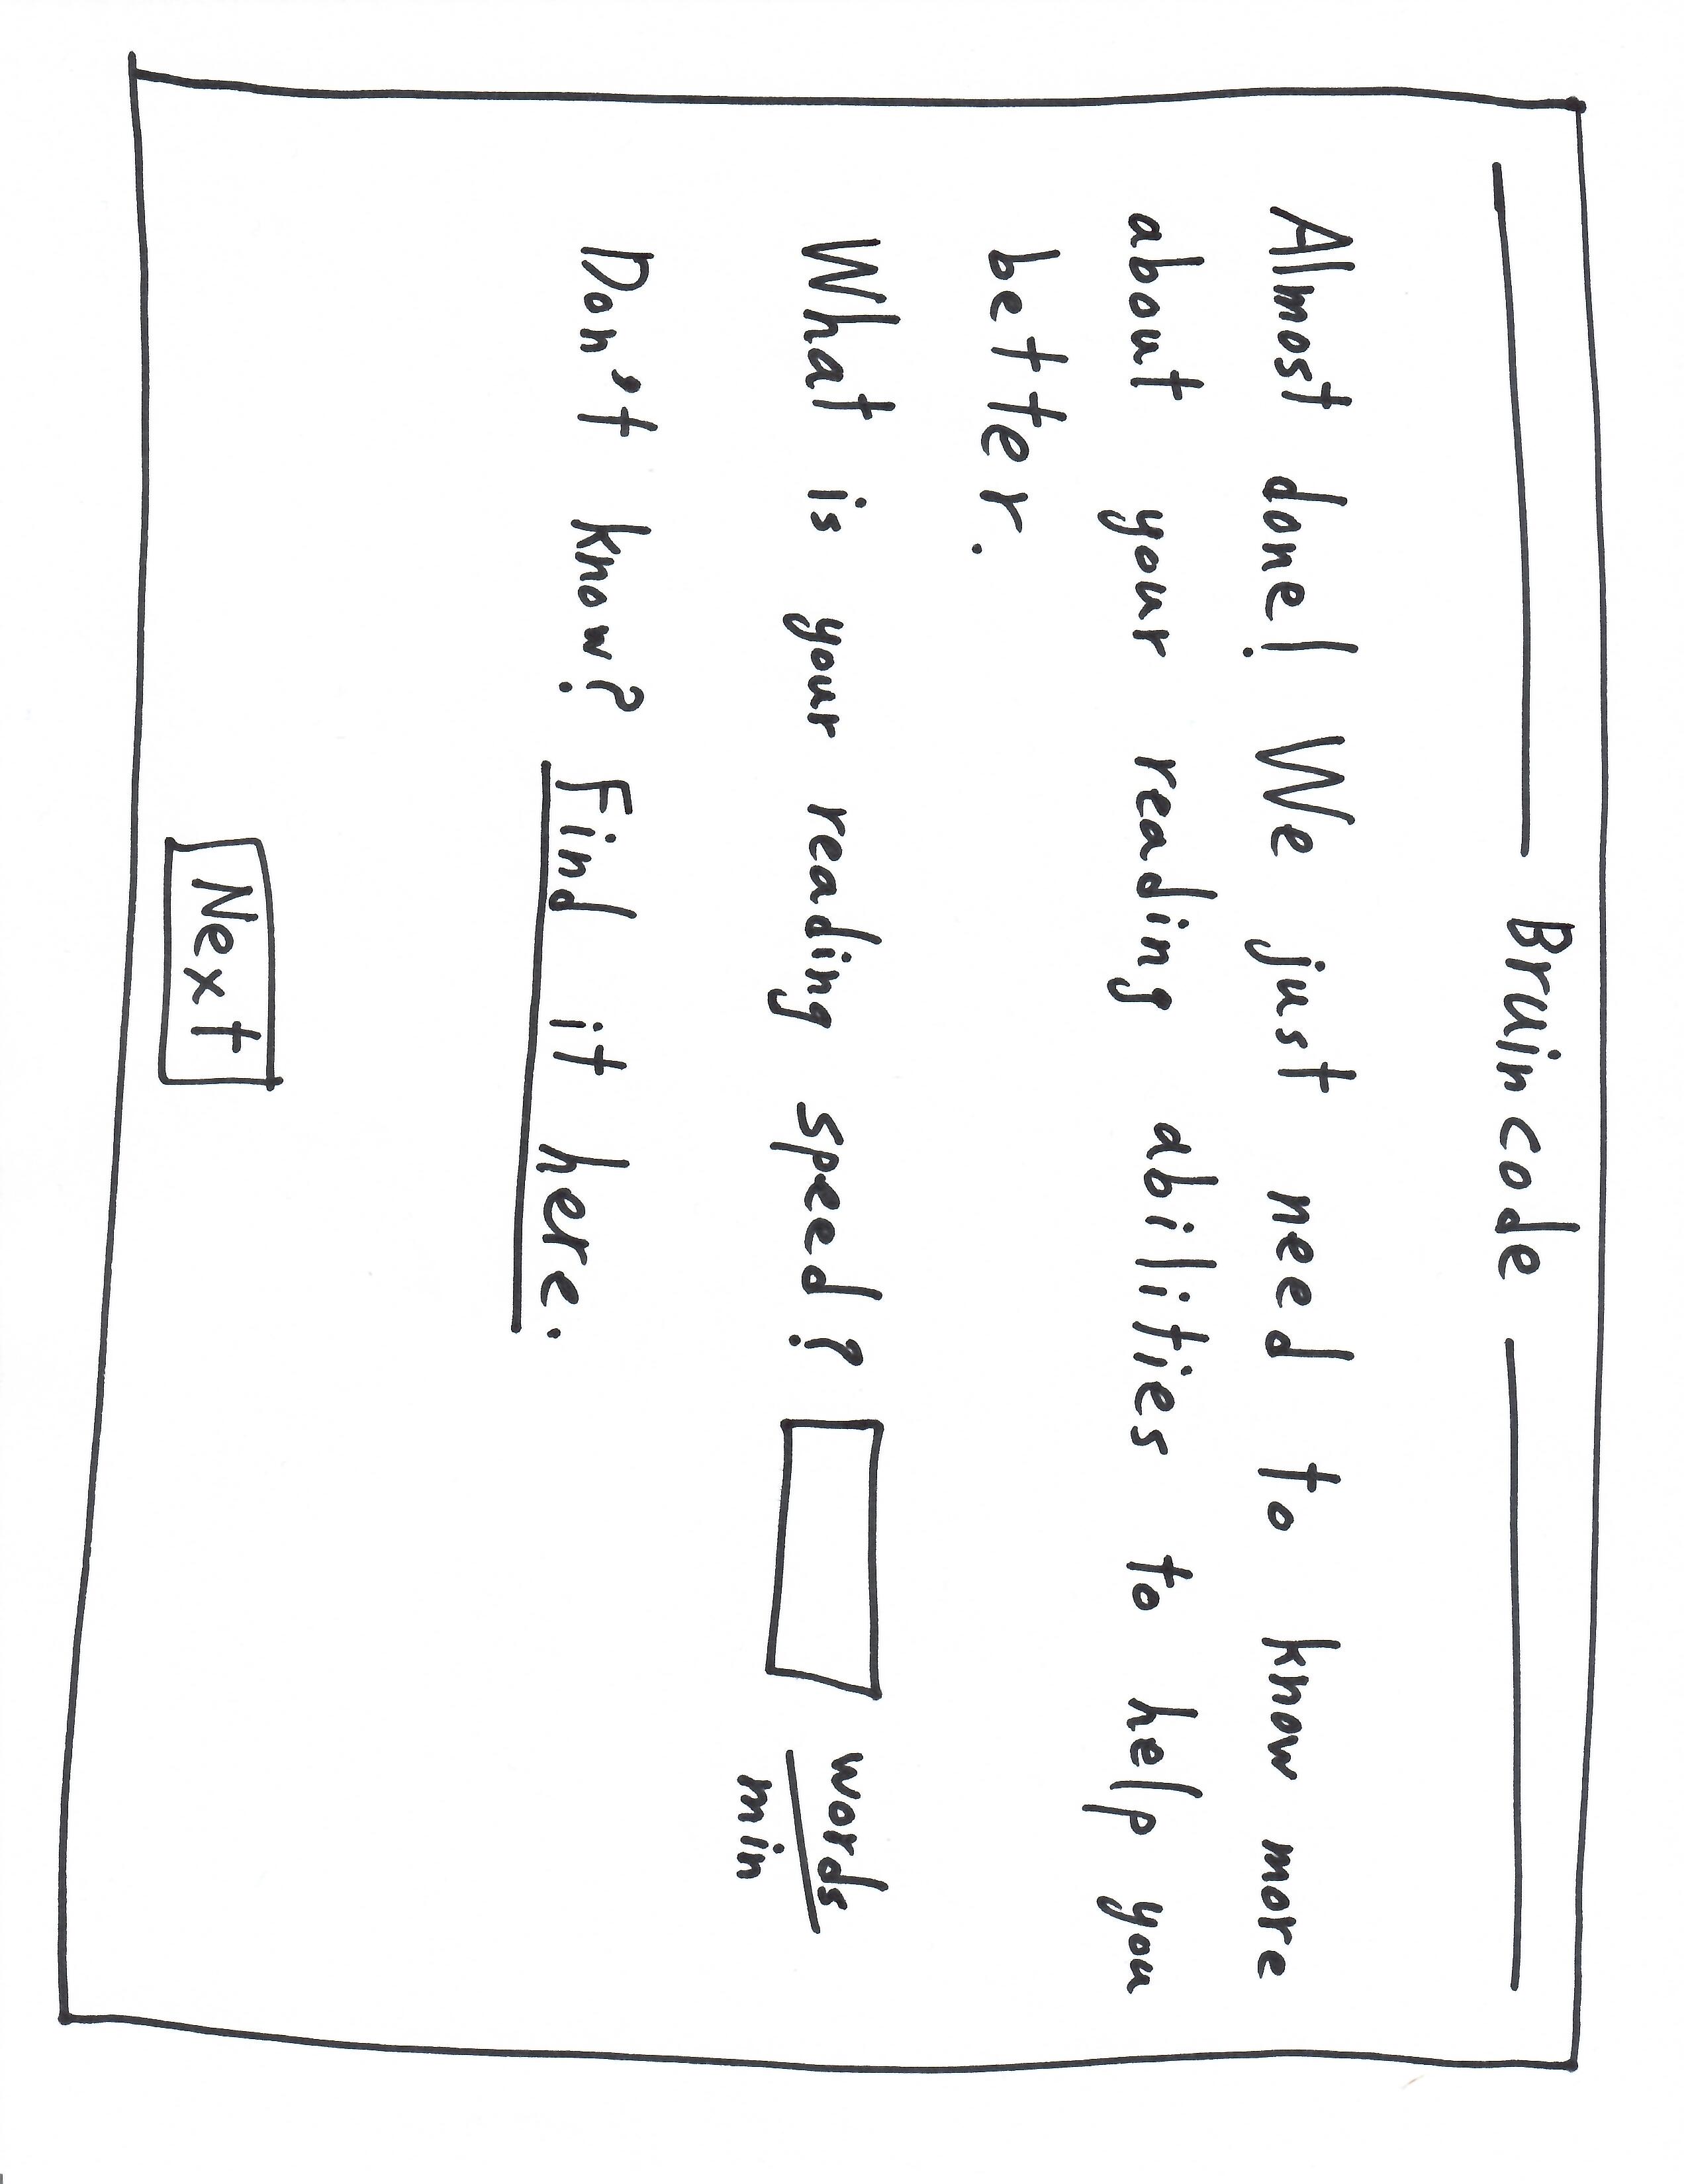 Bruincode
Almost done! We just need to know more
about your reading abilities to help you
better.
What is your reading speed? words/min
Don't know? Find it here.
Next